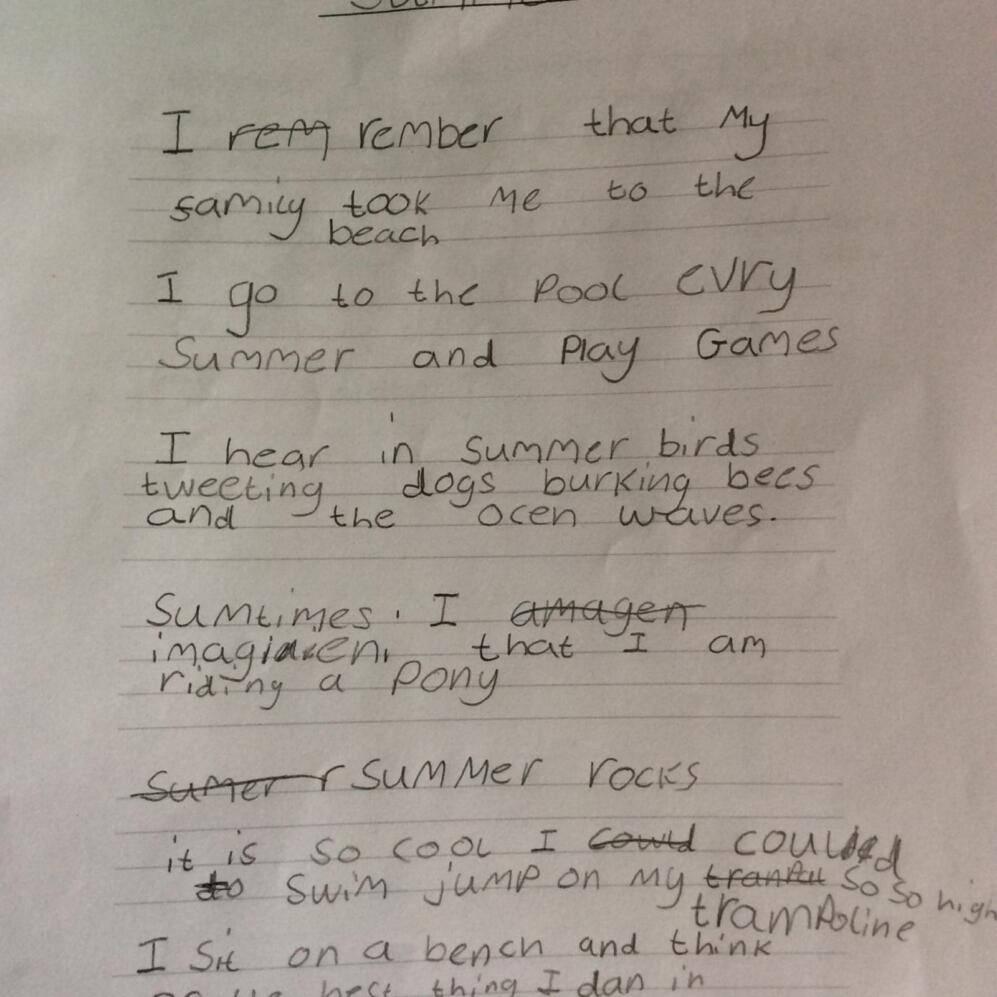 I rem rember that My
family took me to the
beach
I go to the Pool evry
Summer and Play Games
I hear in summer birds
tweeting dogs burking bees
and the ocen waves.
Sumtimes. I amagen
imagin that I am
riding a Pony
Sumer SUMMer rocks
it is so cool I could
to swim jump on my so so high
trampoline
I sit on a bench and think
best thing I dan in